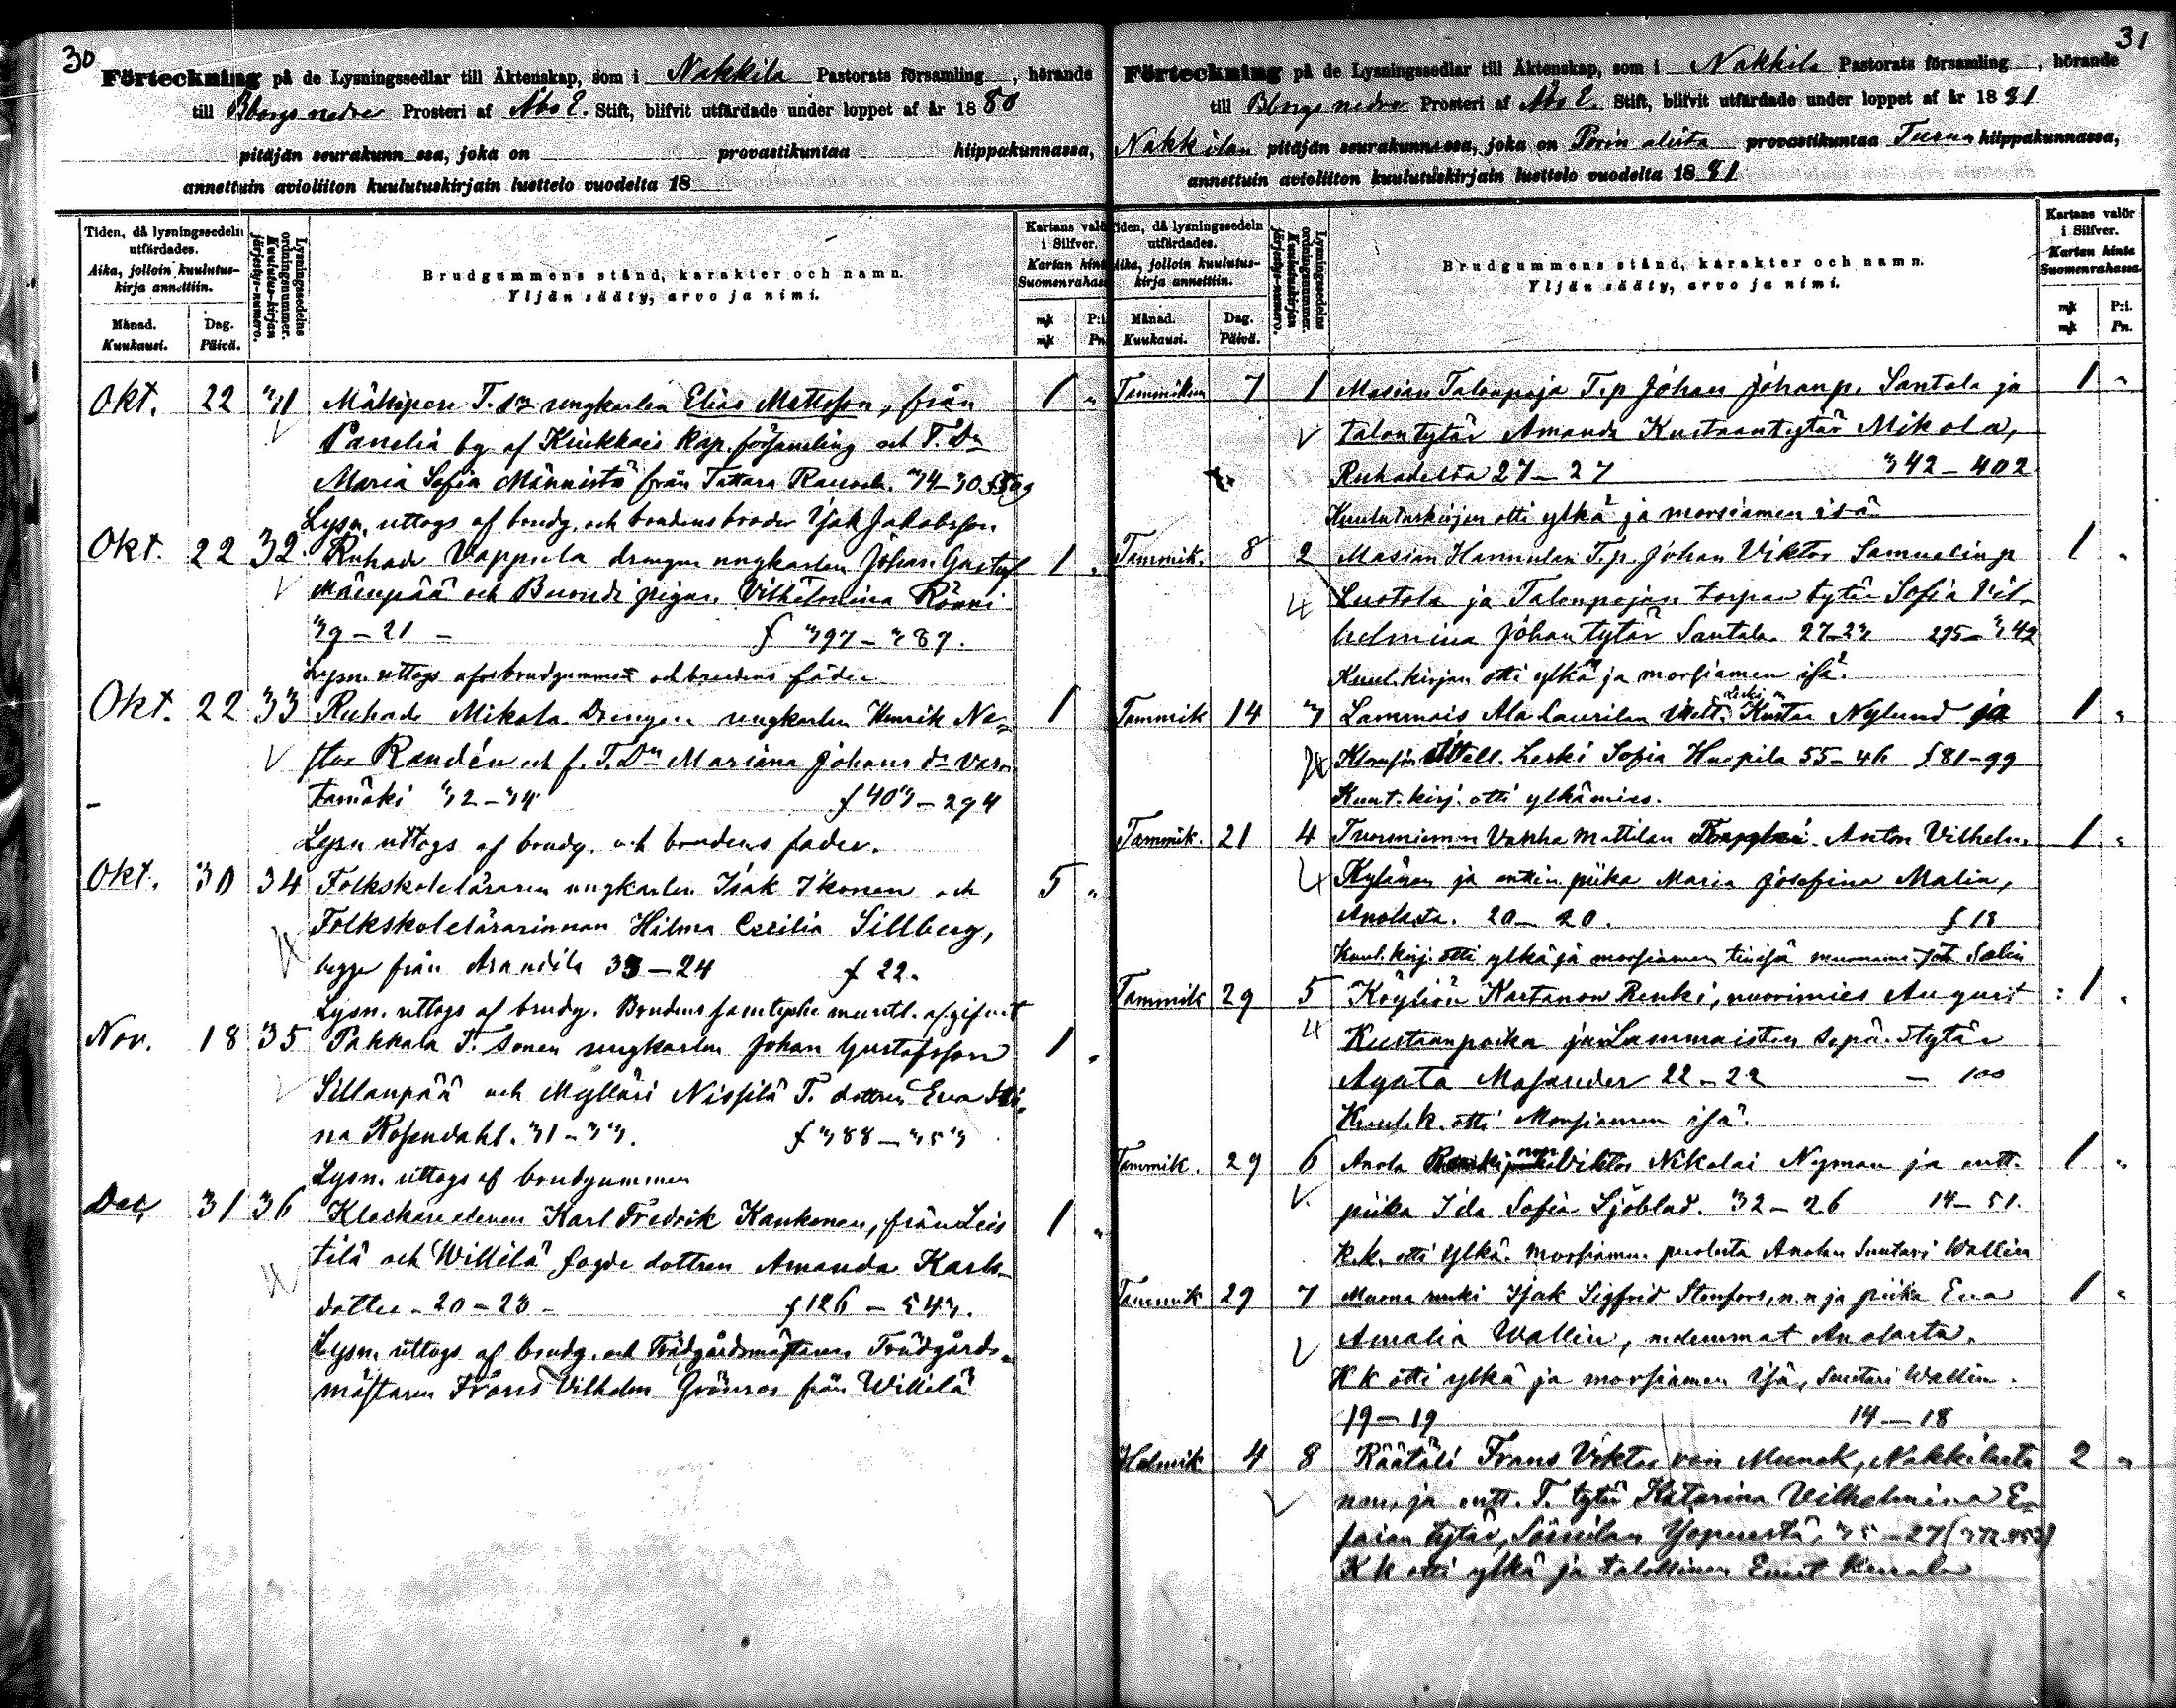 30
Förteckning på de Lysningssedlar till Äktenskap, som i Nakkila Pastorats församling, hörande
till Bborgs nedre Prosteri af Åbo E. Stift, blifvit utfärdade under loppet af år 1880
pitäjän seurakunn ssa, joka on provastikuntaa hiippakunnassa,
annettuin avioliiton kuulutuskirjain luettelo vuodelta 18
Tiden, då lysningssedeln utfärdades.
Aika, jolloin kuulutus-kirja annettiin.
Månad. Kuukausi.
Dag. Päivä.
Lysningssedelns ordningsnummer.
Kuulutus-kirjan järjestys-numero.
Brudgummens stånd, karakter och namn.
Yljän sääty, arvo ja nimi.
Kartans valör i Silfver.
Kartan hinta Suomenrahassa
mk P:i.
mk Pn.
Okt. 22 31 T. sn ungkarlen Elias Mattsson, från 1 "
Panelia by af Kiukkais kap. församling och T. Dn
Maria Sofia Männistö från Tattara 34-30
Lysn. uttogs af brudg. och brudens broder Isak Jakobsson
Okt. 22 32 Ruhade Vappula drengen ungkarlen Johan Gustaf 1 "
Mäenpää och pigan Vilhelmina Rönni
39-21 - f 397-389.
Lysn. uttogs af brudgummen och brudens fader
Okt. 22 33 Ruhade Mikola Drengen ungkarlen Henrik Ne- 1
stor Randén och f. T. Dn Mariana Johans dr
tamäki 32-34 f 403-294
Lysn uttogs af brudg. och brudens fader.
Okt. 30 34 Folkskoleläraren ungkarlen Isak Ikonen och 5 "
Folkskolelärarinnan Hilma Cecilia Sillberg,
begge från 33-24 f 22.
Lysn. uttogs af brudg. Brudens samtycke muntl. afgifvit
Nov. 18 35 Pakkala T. sonen ungkarlen Johan Gustafsson 1 "
Sillanpää och Mylläri Nissilä T. dottren Eva Sti-
na Rosendahl. 31-33. f 388-353
Lysn. uttogs af brudgummen
Dec. 31 36 Klockare eleven Karl Fredrik Kankonen, från Leis 1 "
tilä och Willilä fogde dottren Amanda Karls-
dotter - 20-23 - f 126 - 543.
Lysn. uttogs af brudg. och Trädgårdsmästaren Trädgårds-
mästaren Frans Vilhelm Grönros från Willilä
31
Förteckning på de Lysningssedlar till Äktenskap, som i Nakkila Pastorats församling, hörande
till Bborgs nedre Prosteri af Åbo E. Stift, blifvit utfärdade under loppet af år 1881
Nakkilan pitäjän seurakunnassa, joka on Porin alista provastikuntaa Turun hiippakunnassa,
annettuin avioliiton kuulutuskirjain luettelo vuodelta 1881
Tiden, då lysningssedeln utfärdades.
Aika, jolloin kuulutus-kirja annettiin.
Månad. Kuukausi.
Dag. Päivä.
Lysningssedelns ordningsnummer.
Kuulutuskirjan järjestys-numero.
Brudgummens stånd, karakter och namn.
Yljän sääty, arvo ja nimi.
Kartans valör i Silfver.
Kartan hinta Suomenrahassa
mk P:i.
mk Pn.
Tammikuu 7 1 Masian Talonpoja T.p Johan Johanp. Santala ja 1 "
talontytär Amanda Kustaantytär Mikola,
Ruhadelta 27-27 342-402
Kuulutuskirjan otti ylkä ja morsiamen isä
Tammik. 8 2 Masian Hannulan T.p. Johan Viktor Samuelinp 1 "
Luotola ja Talonpojan torpan tytär Sofia Vil-
helmina Johantytär Santala 27-23 295-342
Kuul. kirjan otti ylkä ja morsiamen isä.
Tammik 14 3 Lammais Ala Laurilan leski m Kustaa Nylund ja 1 "
Itsell. Leski Sofia Haapila 55-46 f 81-99
Kuul. kirj. otti ylkämies.
Tammik. 21 4 Vanha Mattilan Anton Vilhelm 1 "
Kylänen ja entin piika Maria Josefina Malin,
Anolasta. 20-20. f 18
Kuul. kirj. otti ylkä ja morsiamen
Tammik 29 5 Köyliön Kartanon Renki, nuorimies August 1 "
Kustaanpoika ja Lammaisten sepän tytär
Agata 22-22 - 100
Kuul.k. otti Morsiamen isä.
Tammik. 29 6 Anola Viktor Nikolai Nyman ja entt. 1 "
piika Ida Sofia Sjöblad. 32-26 14-51.
K.k. otti ylkä. morsiamen puolesta Anolan Suutari Wallin
Tammik 29 7 renki Isak Sigfrid Stenfors, n.m ja piika Eva 1 "
Amalia Wallin, molemmat Anolasta.
K k otti ylkä ja morsiamen isä, Suutari Wallin.
19-19 14-18
Helmik 4 8 Räätäli Frans Viktor von Munck, Nakkilasta 2 "
nm, ja entt. T. tytär Katarina Vilhelmina E-
saian tytär, 35-27
K k otti ylkä ja talollinen